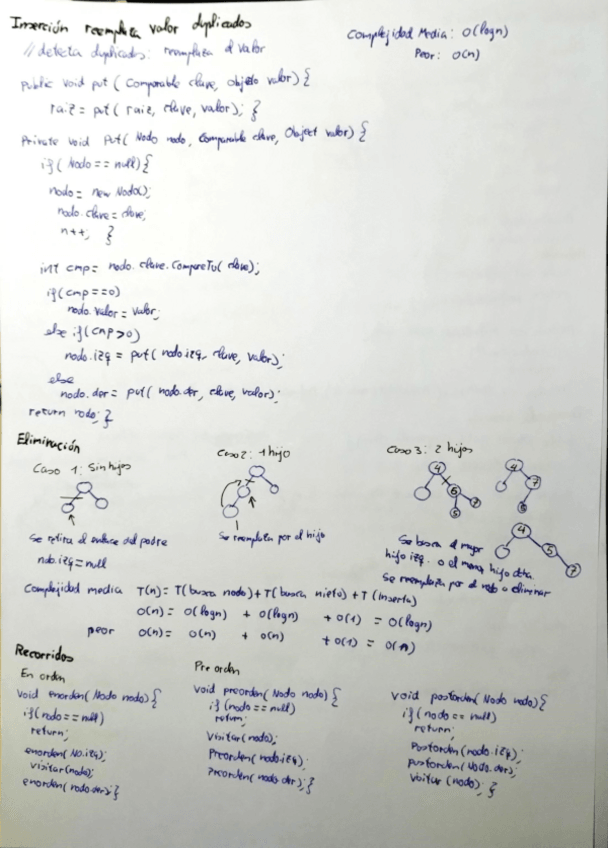 Inserción reemplaza valor duplicados
Complejidad Media: O(logn)
// detecta duplicados: reemplaza el valor
Peor: O(n)
Public void put ( Comparable clave, objeto valor) {
raiz = put ( raiz, clave, valor); }
Private void Put( Nodo nodo, Comparable clave, Object valor) {
if( Nodo == null) {
nodo = new Nodo();
nodo.clave = clave;
n++; }
int cmp = nodo.clave.CompareTo( clave);
if(cmp==0)
nodo.valor = valor;
else if(cmp>0)
nodo.izq = put( nodo.izq, clave, valor);
else
nodo.der = put( nodo.der, clave, valor);
return nodo; }
Eliminación
Caso 1: Sin hijos
Caso 2: 1 hijo
Caso 3: 2 hijos
4
6
7
5
4
7
6
4
5
7
Se retira el enlace del padre
nodo.izq = null
Se reemplaza por el hijo
Se busca el mayor
hijo izq. o el menor hijo dcha.
Se reemplaza por el nodo a eliminar
Complejidad media T(n) = T(busca nodo) + T(busca nieto) + T(inserta)
O(n) = O(logn) + O(logn) + O(1) = O(logn)
peor O(n) = O(n) + O(n) + O(1) = O(n)
Recorridos
En orden
void enorden( Nodo nodo) {
if(nodo == null)
return;
enorden( No.izq);
visitar(nodo);
enorden( nodo.der); }
Pre orden
void preorden( Nodo nodo) {
if (nodo == null)
return;
Visitar(nodo);
Preorden( nodo.izq);
Preorden( nodo.der); }
void postorden( Nodo nodo) {
if (nodo == null)
return;
Postorden (nodo.izq);
postorden (Nodo.der);
visitar (nodo); }